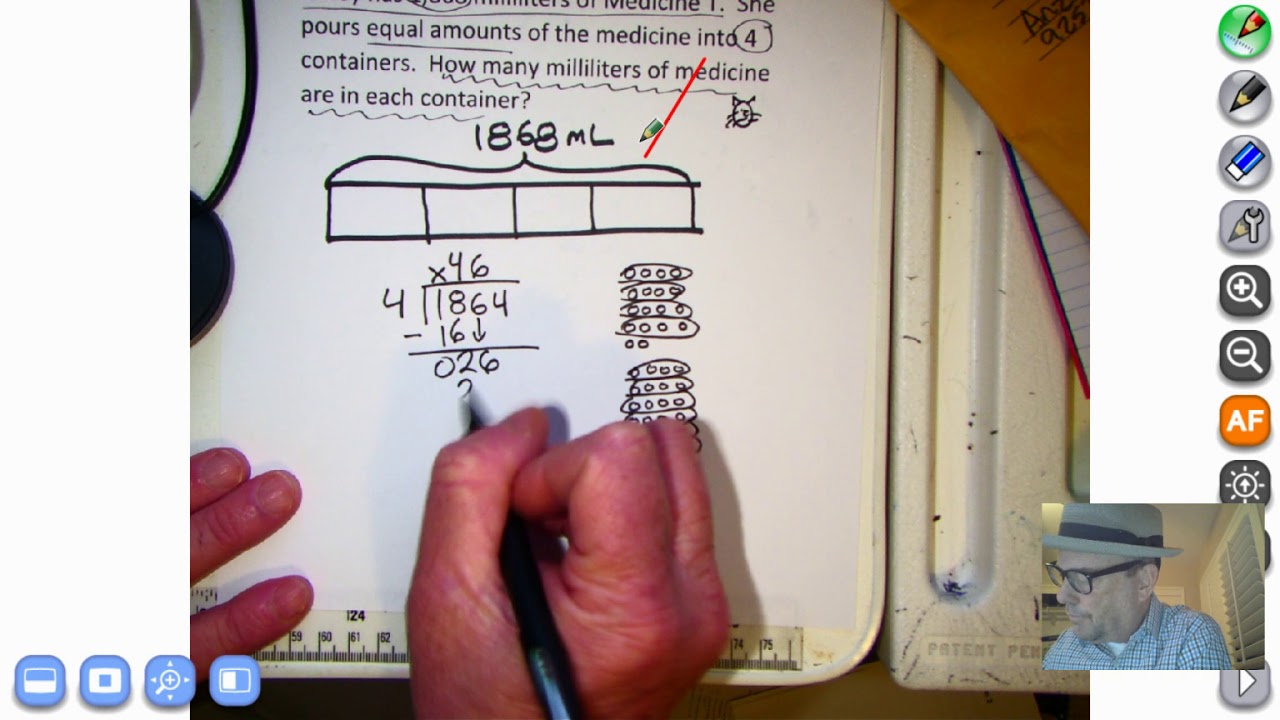 milliliters of Medicine 1. She
pours equal amounts of the medicine into 4
containers. How many milliliters of medicine
are in each container?
1868 mL
x46
4 1864
- 16↓
026
2
124
59 60 61 62
74 75
PATENT PEN
AF